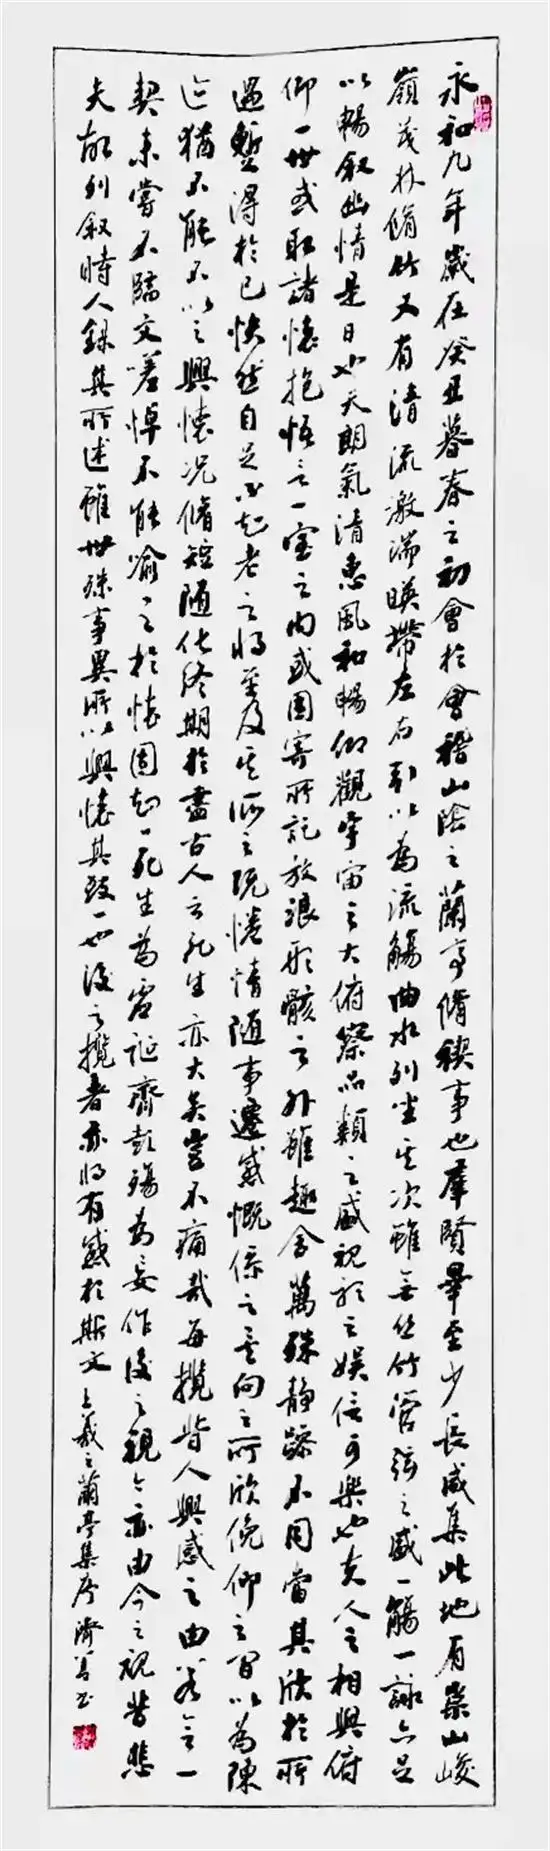 永和九年歲在癸丑暮春之初會於會稽山陰之蘭亭脩稧事也羣賢畢至少長咸集此地有崇山峻
嶺茂林脩竹又有清流激湍暎帶左右引以為流觴曲水列坐其次雖無丝竹管弦之盛一觴一詠亦足
以暢叙幽情是日也天朗氣清惠風和暢仰觀宇宙之大俯察品類之盛視聽之娱信可樂也夫人之相與俯
仰一世或取諸懷抱悟言一室之内或因寄所託放浪形骸之外雖趣舍萬殊静躁不同當其欣於所
遇暫得於己快然自足不知老之將至及其所之既惓情隨事遷感慨係之矣向之所欣俛仰之間以為陳
迹猶不能不以之興懷况脩短隨化終期於盡古人云死生亦大矣豈不痛哉每攬昔人興感之由若合一
契未嘗不臨文嗟悼不能喻之於懷固知一死生為虚誕齊彭殤為妄作後之視今亦由今之視昔悲
夫故列叙時人錄其所述雖世殊事異所以興懷其致一也後之攬者亦將有感於斯文 羲之蘭亭集序 濟善书